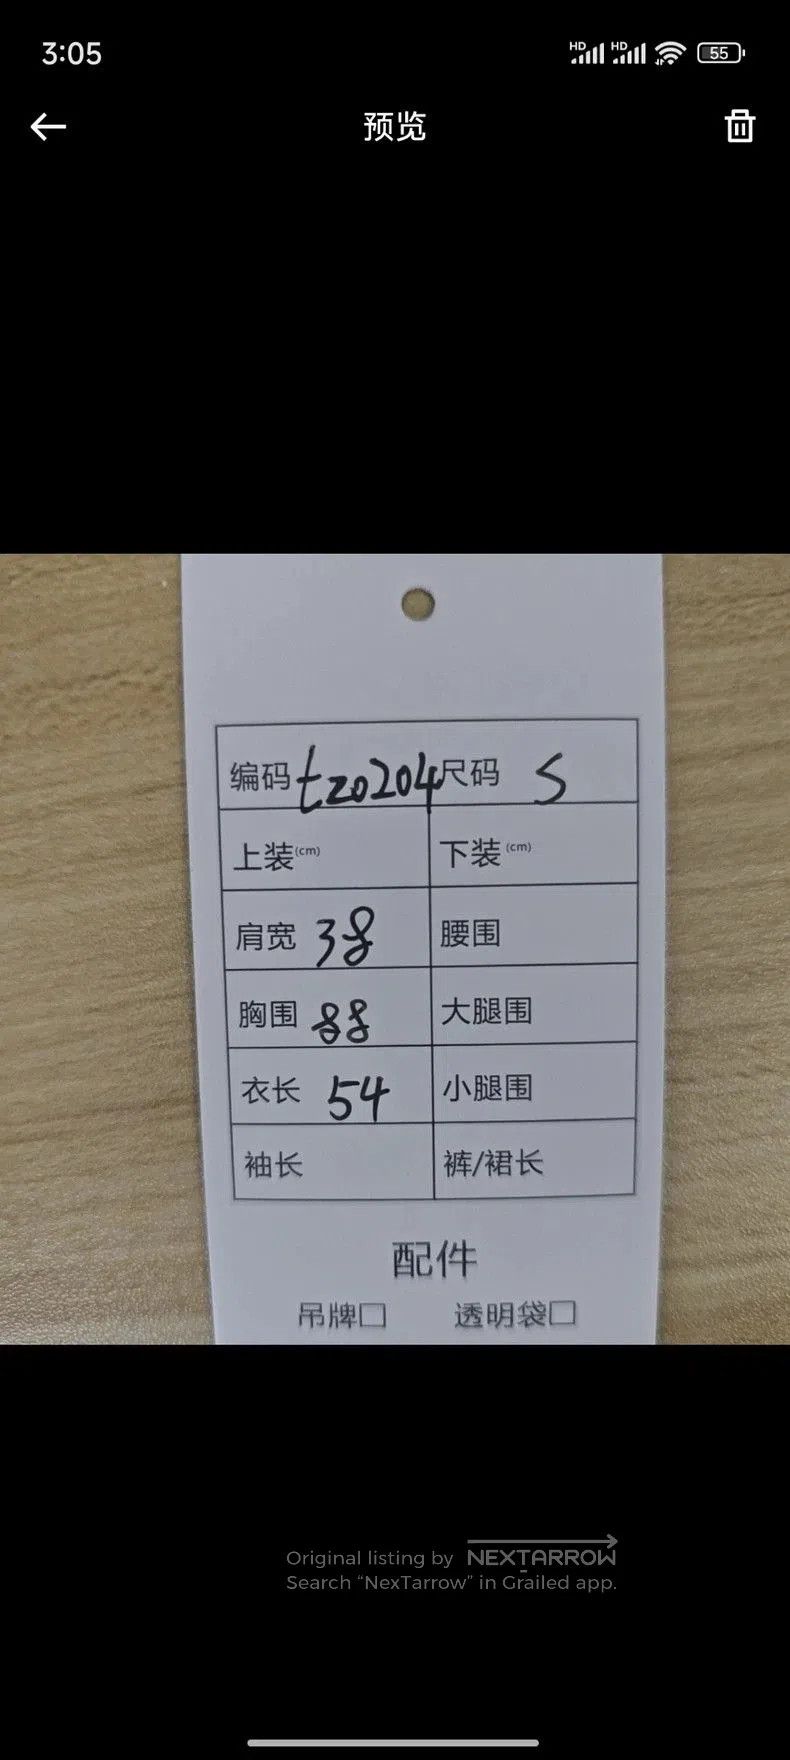 3:05
HD HD 55
预览
编码 tz0204 尺码 S
上装(cm) 下装(cm)
肩宽 38 腰围
胸围 88 大腿围
衣长 54 小腿围
袖长 裤/裙长
配件
吊牌□ 透明袋□
Original listing by NEXTARROW
Search “NexTarrow” in Grailed app.